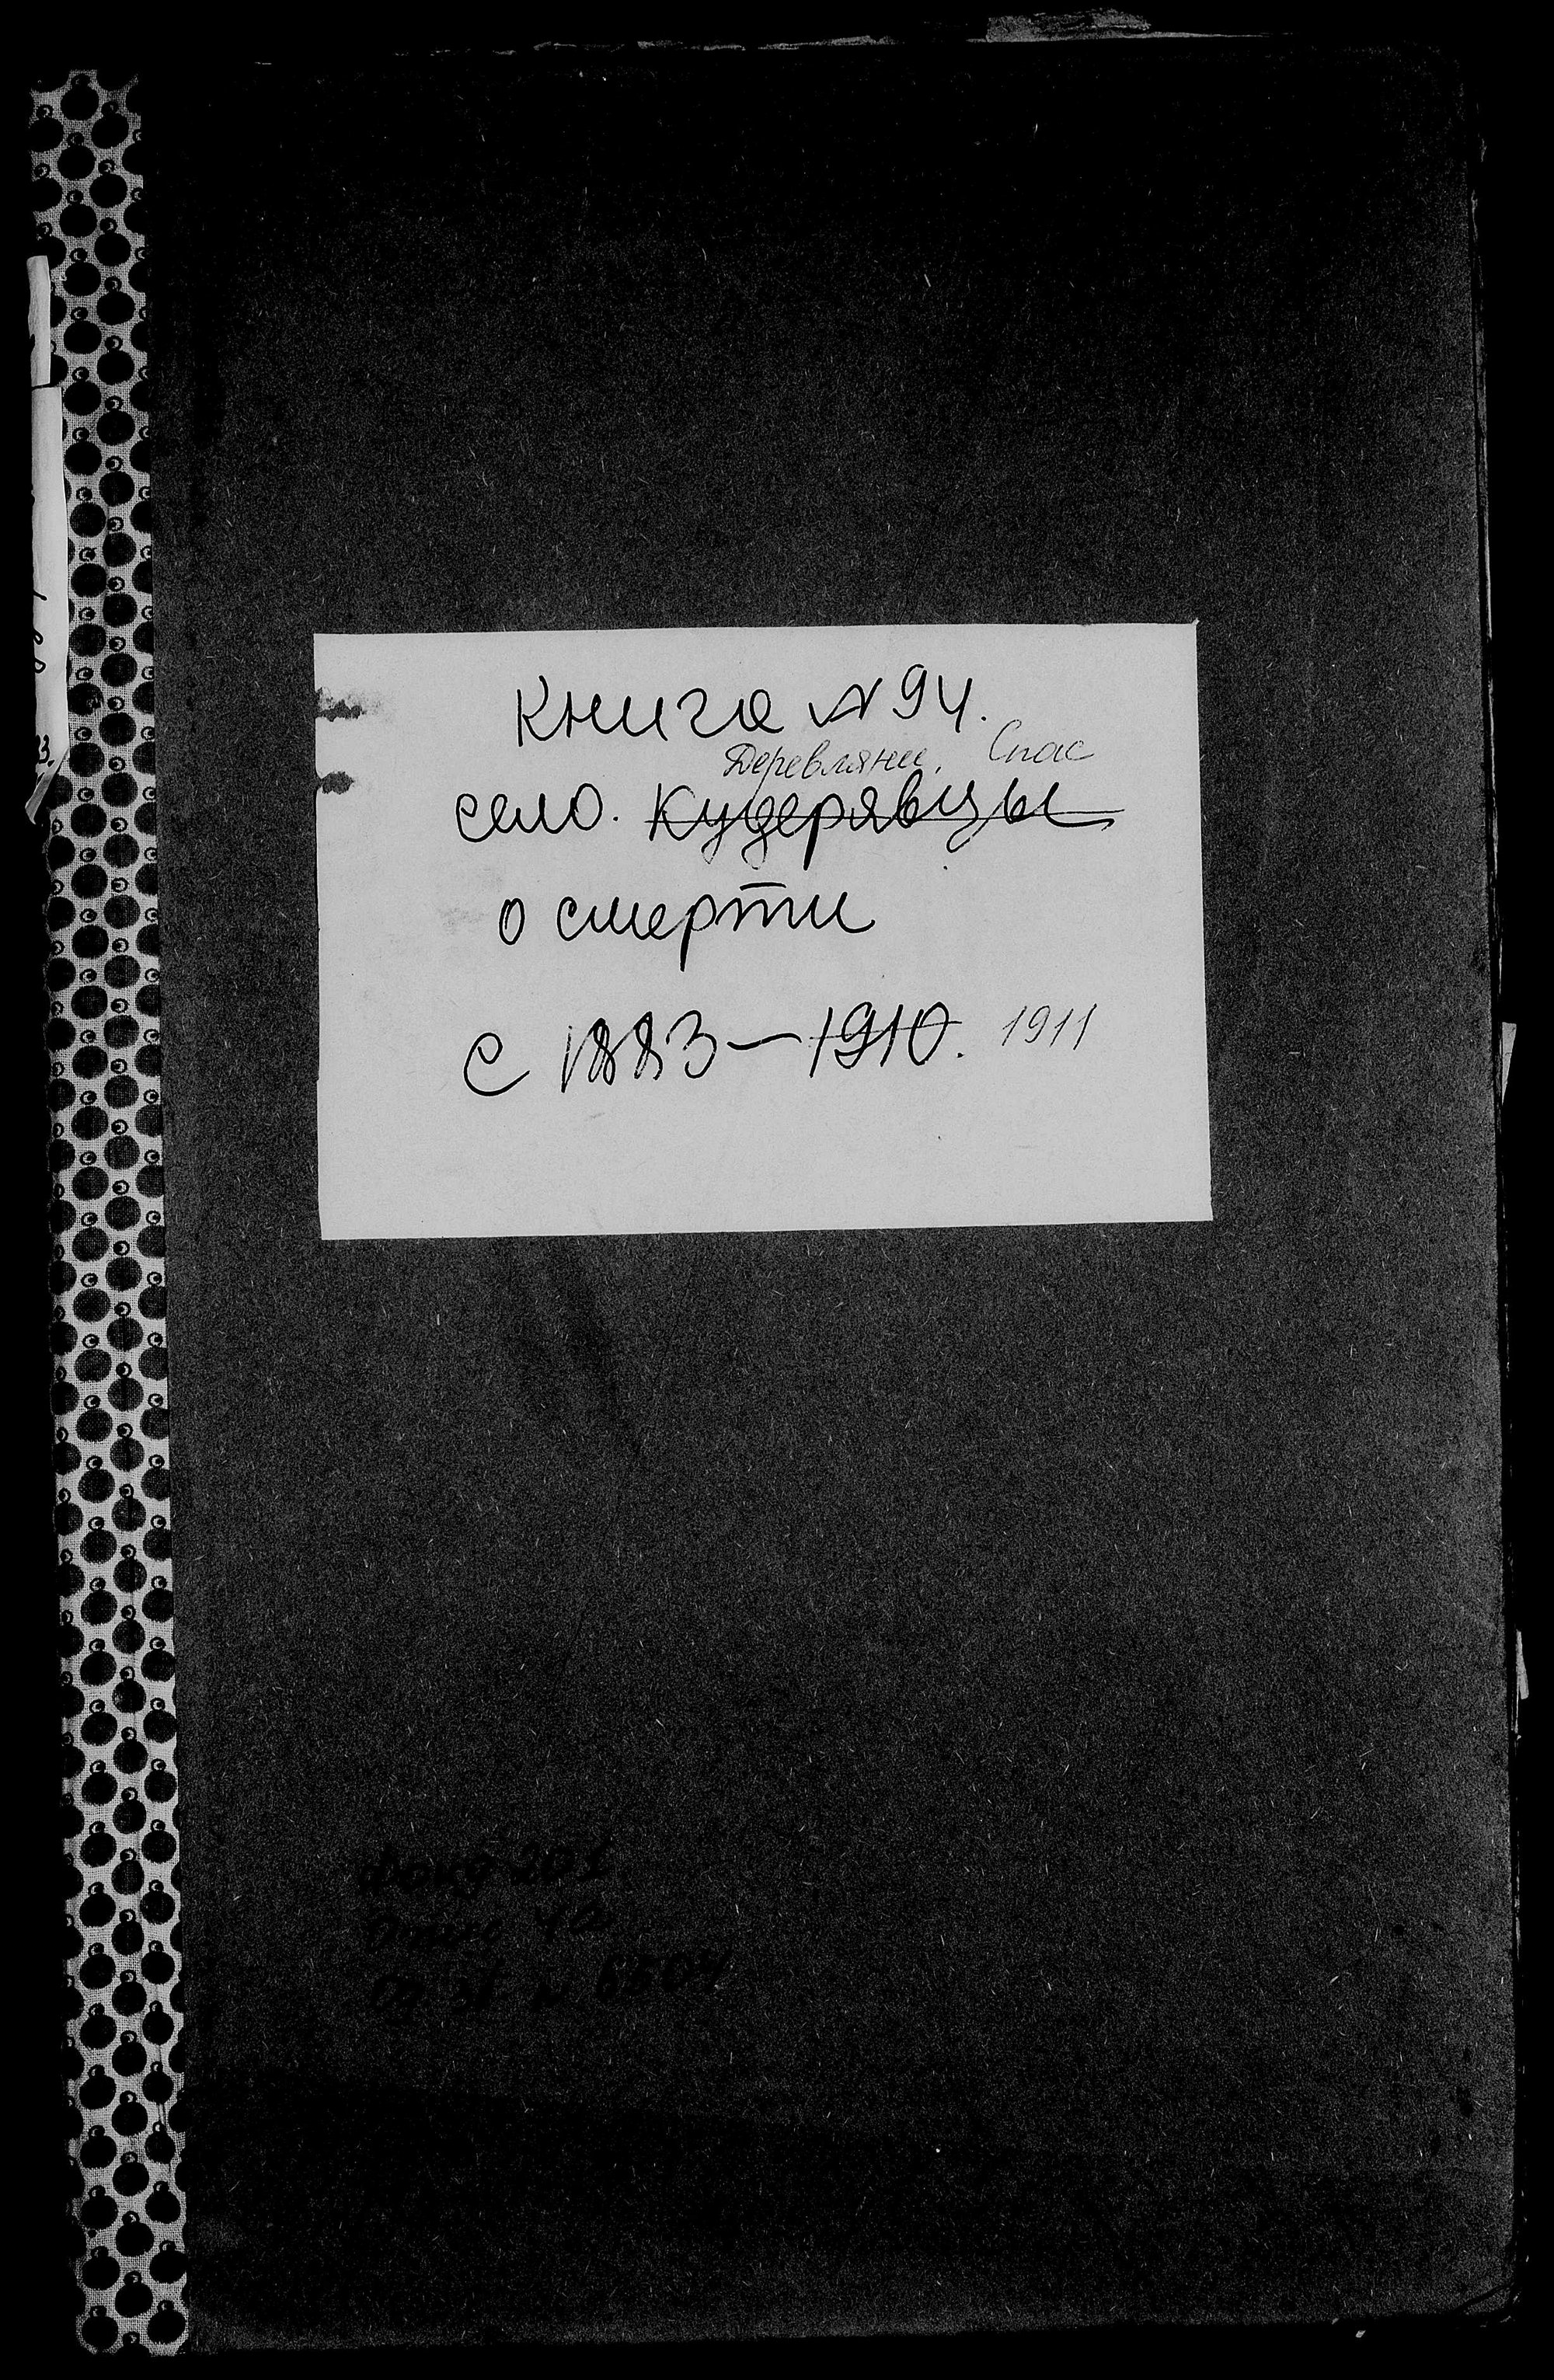 Книга №94.
Деревляне, Спас
село. Кудерявцы
о смерти
с 1883–1910. 1911
Фонд 201
Опись 4а
5504